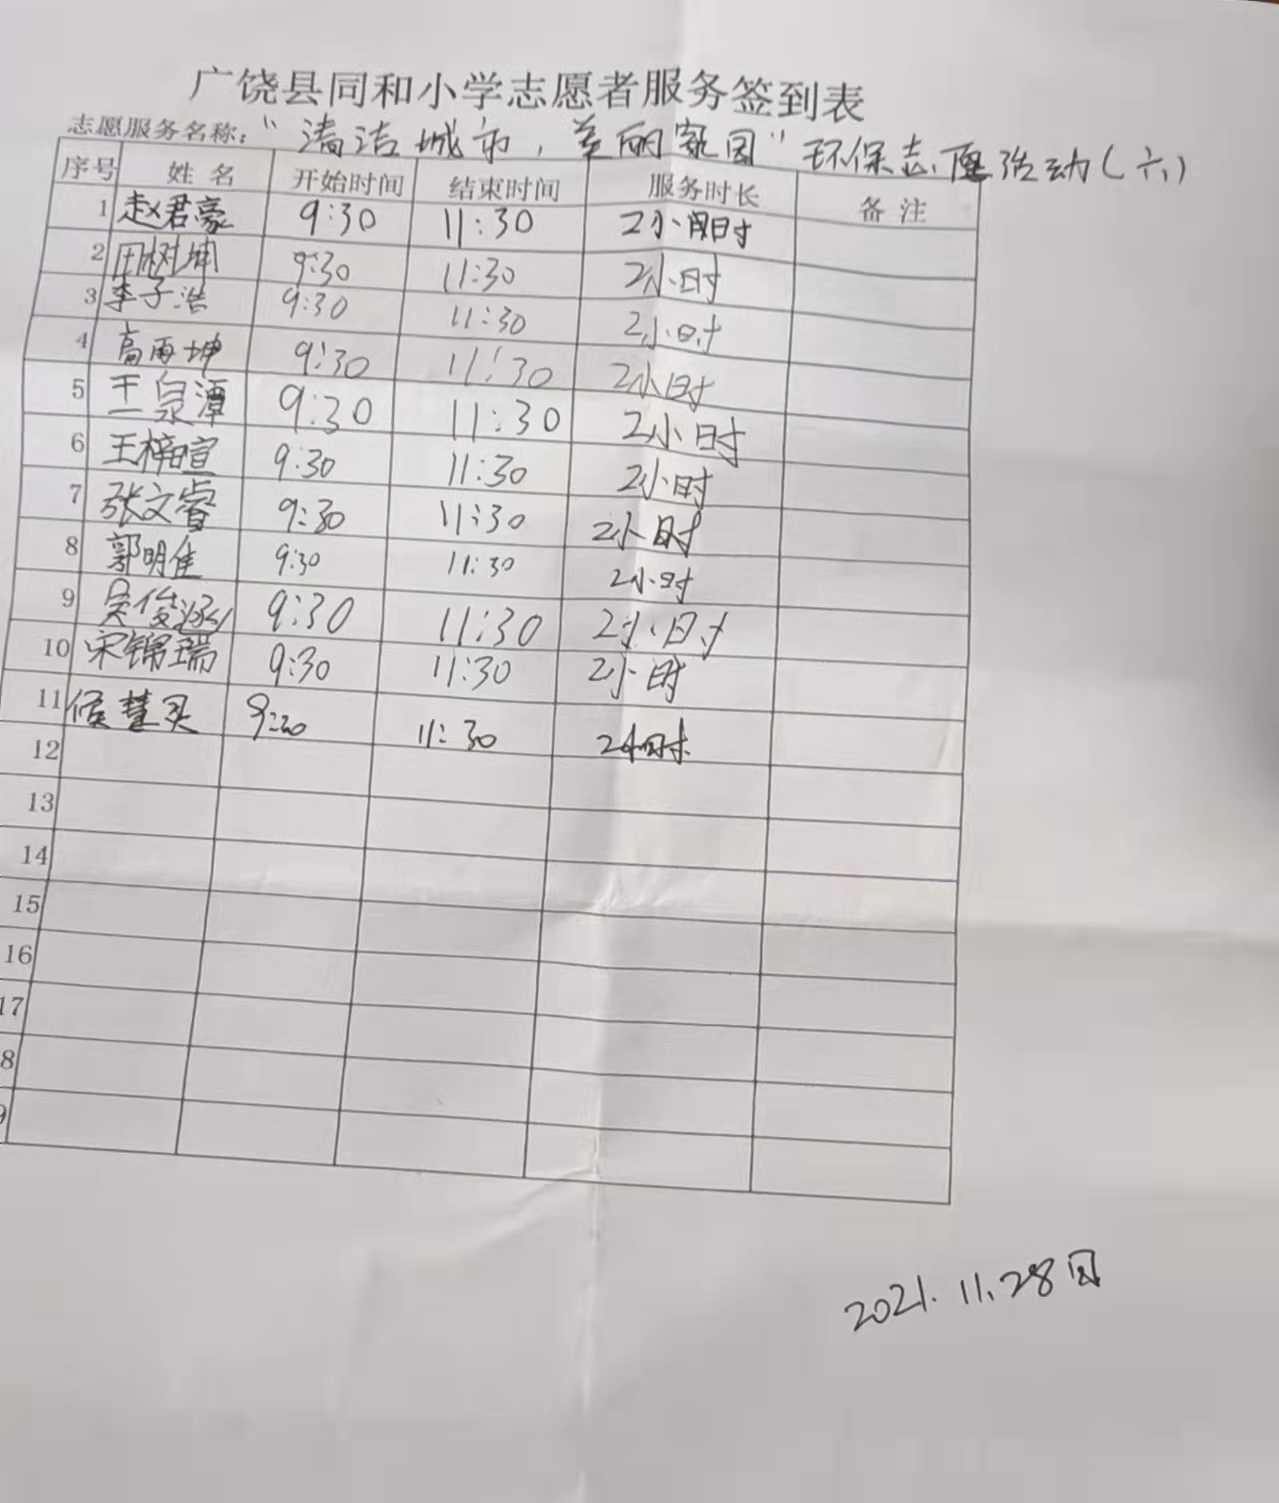 广饶县同和小学志愿者服务签到表
志愿服务名称："清洁城市，美丽家园"环保志愿活动(六)
序号 姓名 开始时间 结束时间 服务时长 备注
1 赵君豪 9:30 11:30 2小时
2 田树坤 9:30 11:30 2小时
3 李子浩 9:30 11:30 2小时
4 高雨坤 9:30 11:30 2小时
5 王泉潭 9:30 11:30 2小时
6 王梓暄 9:30 11:30 2小时
7 张文睿 9:30 11:30 2小时
8 郭明隹 9:30 11:30 2小时
9 吴俊涵 9:30 11:30 2小时
10 宋锦瑞 9:30 11:30 2小时
11 侯慧 9:30 11:30 2小时
12
13
14
15
16
17
8
9
2021.11.28日